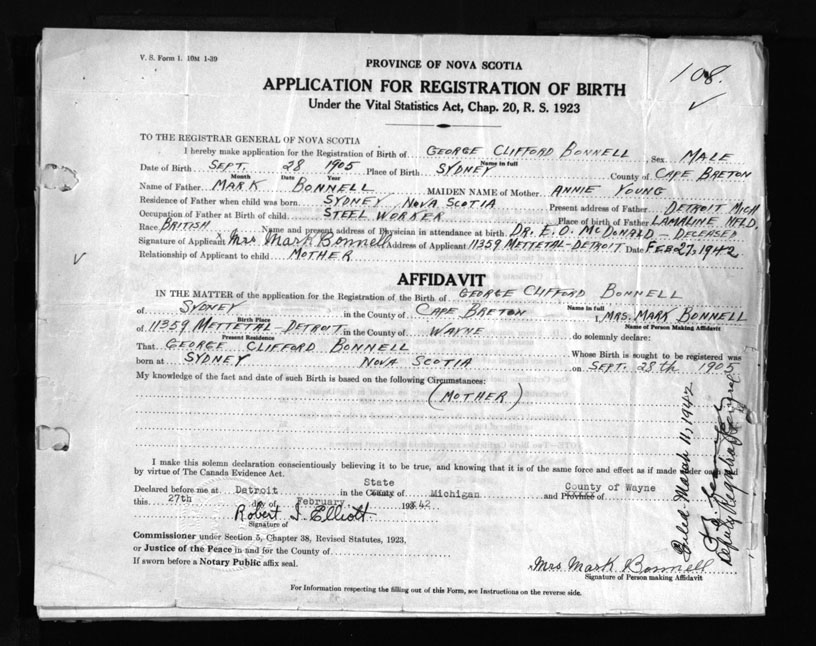 V. S. Form 1. 10M 1-39
108.
PROVINCE OF NOVA SCOTIA
APPLICATION FOR REGISTRATION OF BIRTH
Under the Vital Statistics Act, Chap. 20, R. S. 1923
TO THE REGISTRAR GENERAL OF NOVA SCOTIA
I hereby make application for the Registration of Birth of GEORGE CLIFFORD BONNELL, Sex MALE
Name in full
Date of Birth SEPT. 28 1905 Place of Birth SYDNEY County of CAPE BRETON
Month Date Year
Name of Father MARK BONNELL MAIDEN NAME of Mother ANNIE YOUNG
Residence of Father when child was born SYDNEY NOVA SCOTIA Present address of Father DETROIT MICH
Occupation of Father at Birth of child STEEL WORKER Place of birth of Father LAMALINE NFLD.
Race BRITISH Name and present address of Physician in attendance at birth DR. E. O. McDONALD - DECEASED
Signature of Applicant x Mrs Mark Bonnell Address of Applicant 11359 METTETAL-DETROIT Date FEB 27, 1942
Relationship of Applicant to child MOTHER
AFFIDAVIT
IN THE MATTER of the application for the Registration of the Birth of GEORGE CLIFFORD BONNELL
Name in full
of SYDNEY in the County of CAPE BRETON I, MRS. MARK BONNELL
Birth Place Name of Person Making Affidavit
of 11359 METTETAL-DETROIT in the County of WAYNE do solemnly declare:
Present Residence
That GEORGE CLIFFORD BONNELL Whose Birth is sought to be registered was
born at SYDNEY NOVA SCOTIA on SEPT. 28th 1905
My knowledge of the fact and date of such Birth is based on the following Circumstances:
(MOTHER)
I make this solemn declaration conscientiously believing it to be true, and knowing that it is of the same force and effect as if made under oath
by virtue of The Canada Evidence Act.
State County of Wayne
Declared before me at Detroit in the County of Michigan and Province of
this 27th day of February 1942
Robert J. Elliott
Signature of
Commissioner under Section 5, Chapter 38, Revised Statutes, 1923,
or Justice of the Peace in and for the County of
If sworn before a Notary Public affix seal.
Mrs Mark Bonnell
Signature of Person making Affidavit
For Information respecting the filling out of this Form, see Instructions on the reverse side.
Filed March 11, 1942
Deputy Registrar General